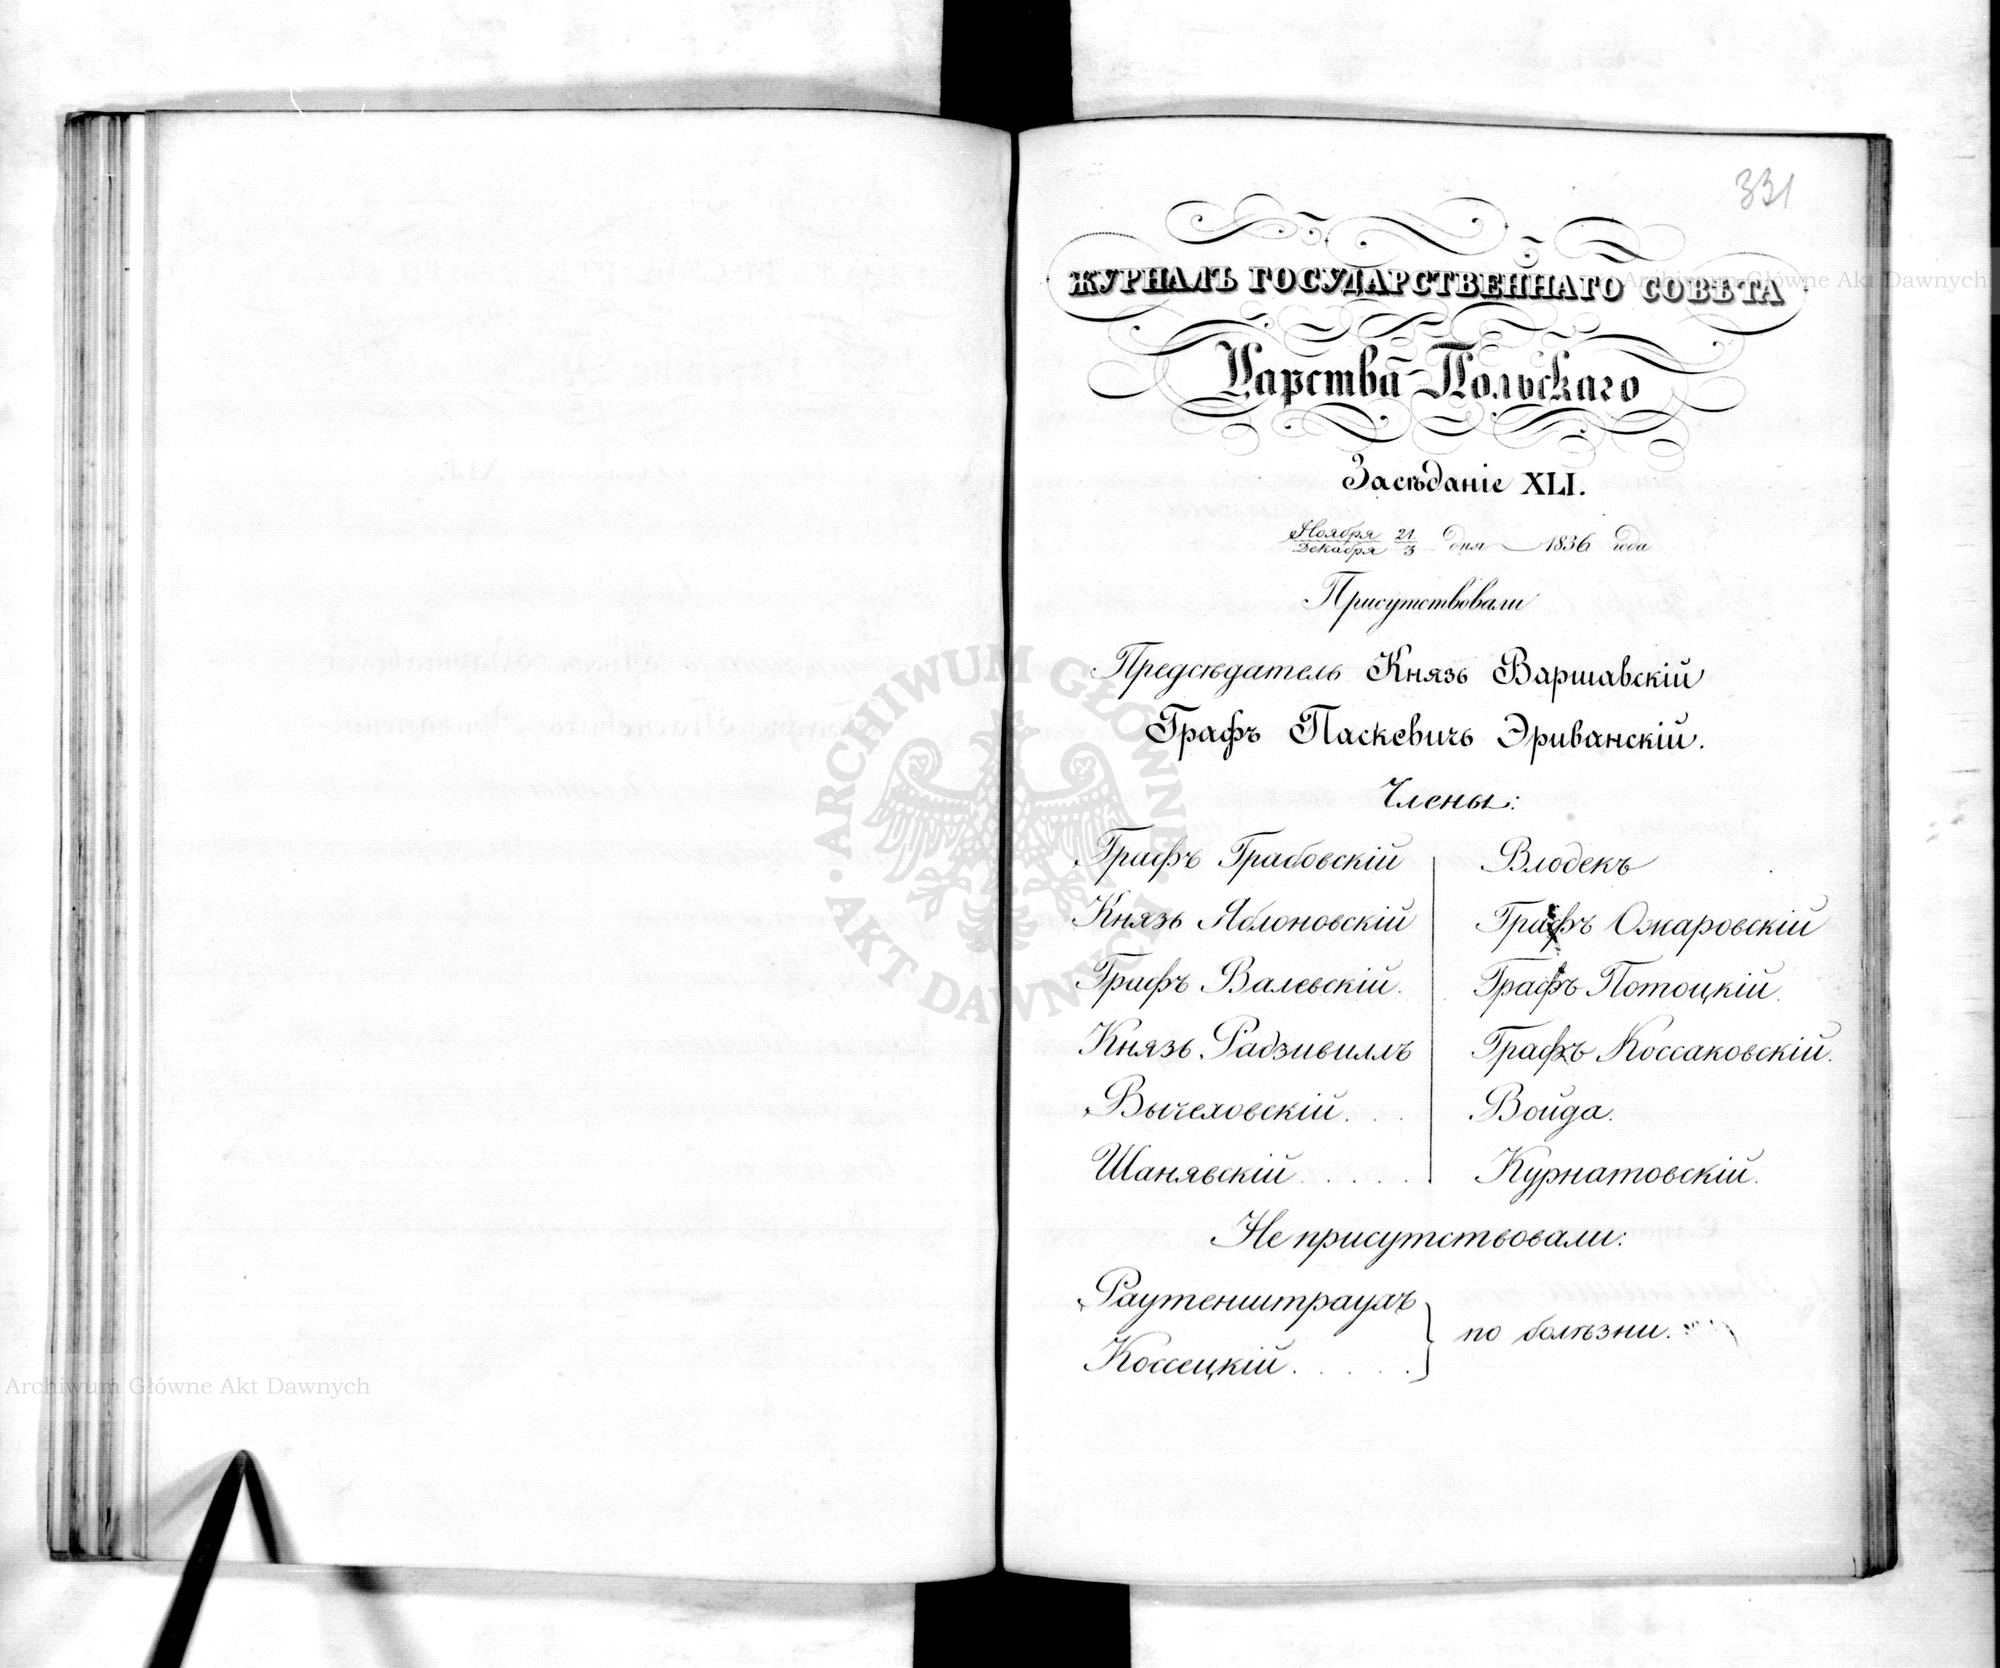 331
ЖУРНАЛЪ ГОСУДАРСТВЕННАГО СОВѢТА
Царства Польскаго
Засѣданіе XLI.
Ноября 21 / Декабря 3 дня 1836 года
Присутствовали
Предсѣдатель Князь Варшавскій
Графъ Паскевичъ Эриванскій.
Члены:
Графъ Грабовскій
Князь Яблоновскій
Графъ Валевскій.
Князь Радзивиллъ
Вычеховскій.
Шанявскій
Влодекъ
Графъ Ожаровскій
Графъ Потоцкій.
Графъ Коссаковскій.
Войда.
Курнатовскій.
Не присутствовали:
Раутенштраухъ
Коссецкій.
по болѣзни.
Archiwum Główne Akt Dawnych
ARCHIWUM GŁÓWNE AKT DAWNYCH
Archiwum Główne Akt Dawnych